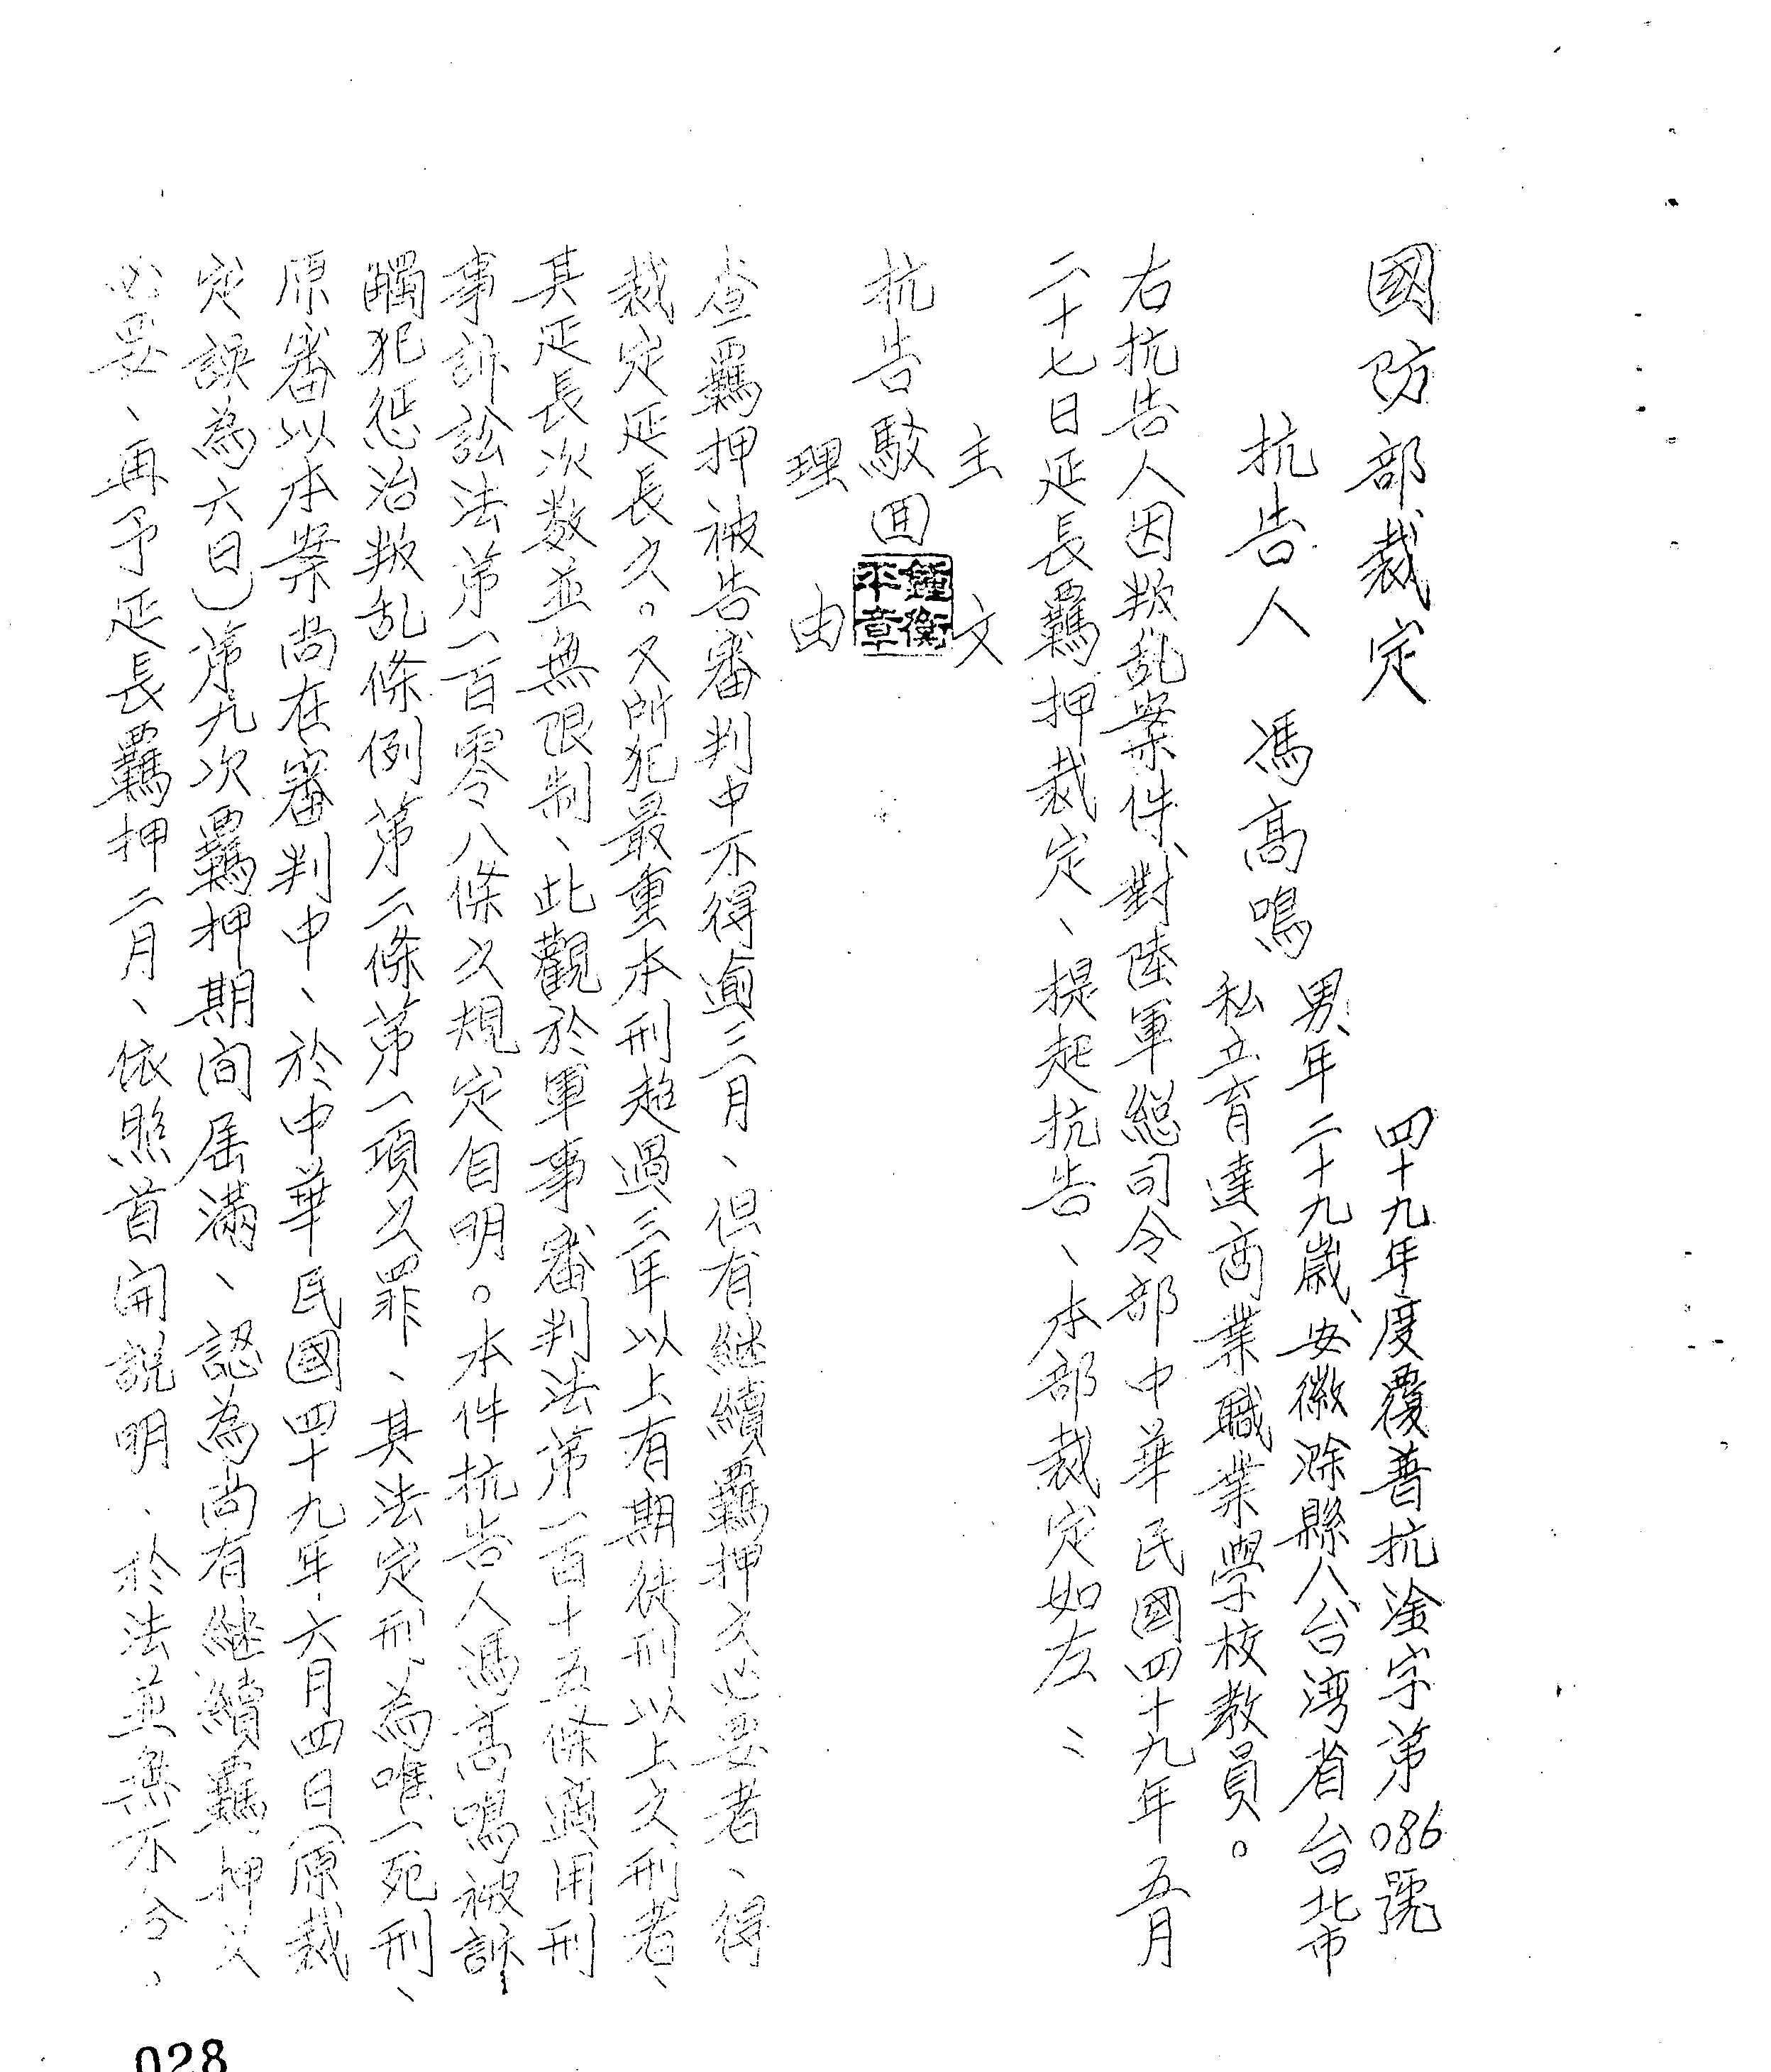 國防部裁定
四十九年度覆普抗淦字第086號
抗告人 馮高鳴
男、年二十九歲、安徽滁縣人、台湾省台北市
私立育達商業職業學校教員。
右抗告人因叛乱案件、對陸軍總司令部中華民國四十九年五月
二十七日延長羈押裁定、提起抗告、本部裁定如左：
主文
抗告駁回
鍾衡
平章
理由
查羈押被告審判中不得逾三月、但有継續羈押之必要者、得
裁定延長之。又所犯最重本刑超過三年以上有期徒刑以上之刑者、
其延長次数並無限制、此觀於軍事審判法第一百十五條適用刑
事訴訟法第一百零八條之規定自明。本件抗告人馮高鳴被訴
觸犯惩治叛乱條例第二條第一項之罪、其法定刑為唯一死刑、
原審以本案尚在審判中、於中華民國四十九年六月四日(原裁
定誤為六日)第九次羈押期间屆滿、認為尚有継續羈押之
必要、再予延長羈押二月、依照首開説明、於法並無不合。
028